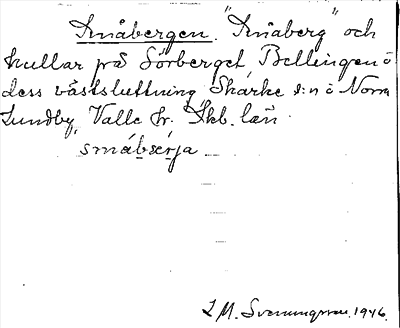 Småbergen. "Småberg" och
kullar på Sörberget Bellingen å
dess västsluttning Skärke s:n å Norra
Lundby, Valle hr. Skb. län
småbærja
L M. Svenungsson. 1946.